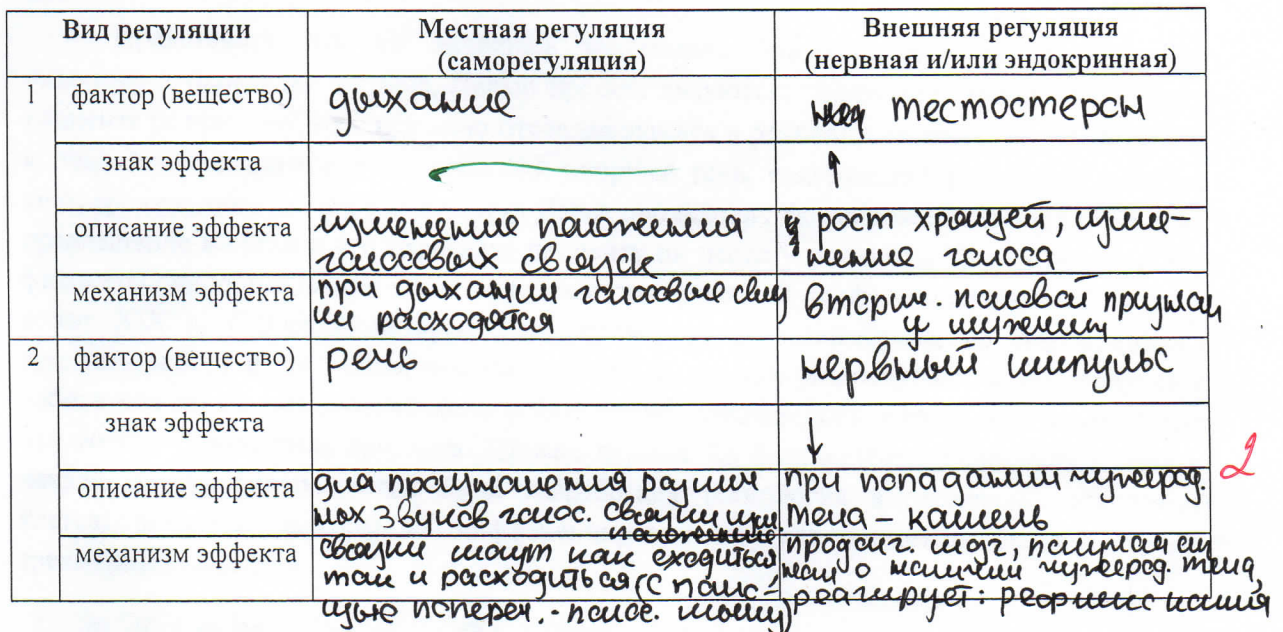 Вид регуляции
Местная регуляция
(саморегуляция)
Внешняя регуляция
(нервная и/или эндокринная)
1 фактор (вещество)
дыхание
тестостерон
знак эффекта
↑
описание эффекта
изменение положения
голосовых связок
рост хрящей, изме-
нение голоса
механизм эффекта
при дыхании голосовые связ
ки расходятся
вторич. половой признак
у мужчин
2 фактор (вещество)
речь
нервный импульс
знак эффекта
↓
описание эффекта
для произношения различ
ных звуков голос. связки
положение
при попадании чужерод.
тела - кашель
2
механизм эффекта
связки могут как сходиться
так и расходиться (с помо-
щью попереч. - мышц)
продолг. мозг, сиг
нал о наличии чужерод. тела,
реагирует: рефлекс кашля